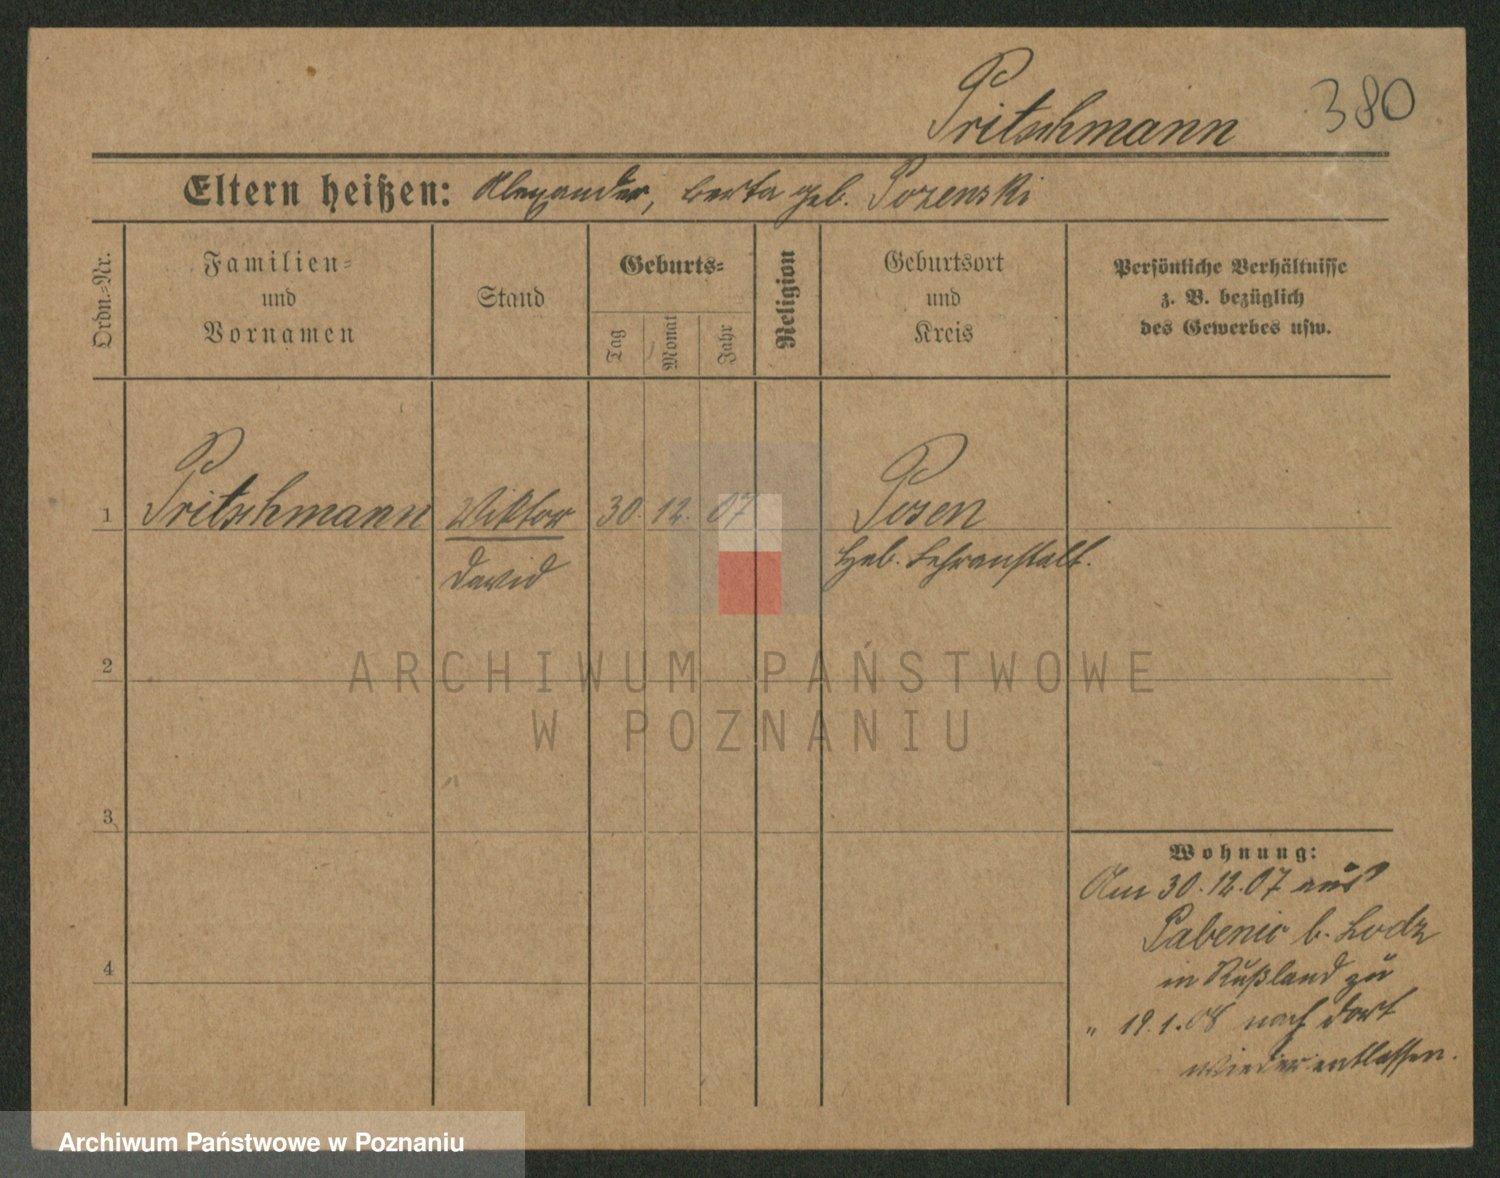 Pritschmann 380
Eltern heißen: Alexander, Berta geb. Pozenski
Ordn.-Nr.
Familien-
und
Vornamen
Stand
Geburts-
Tag
Monat
Jahr
Religion
Geburtsort
und
Kreis
Persönliche Verhältnisse
z. B. bezüglich
des Gewerbes usw.
1 Pritschmann Wiktor 30. 12. 07 Posen
David Heb. Lehranstalt.
2
3
4
Wohnung:
Am 30.12.07 aus
Pabenic b. Lodz
in Rußland zu
" 19.1.08 nach dort
wieder entlassen.
ARCHIWUM PAŃSTWOWE
W POZNANIU
Archiwum Państwowe w Poznaniu